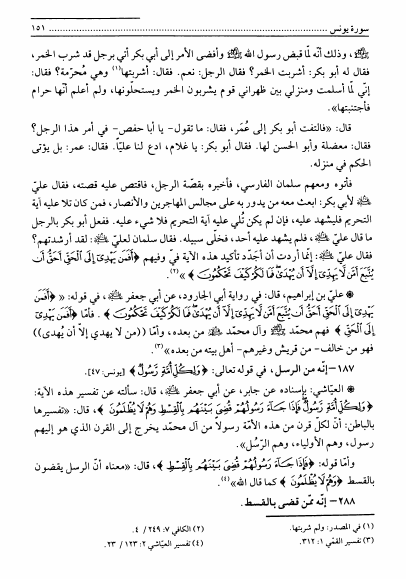 سورة يونس ........ ١٥١
ﷺ، وذلك أنّه لمّا قبض رسول الله ﷺ وأفضى الأمر إلى أبي بكر أتي برجل قد شرب الخمر،
فقال له أبو بكر: أشربت الخمر؟ فقال الرجل: نعم. فقال: أشربتها(١) وهي مُحرّمة؟ فقال:
إنّي لمّا أسلمت ومنزلي بين ظهراني قوم يشربون الخمر ويستحلّونها، ولم أعلم أنّها حرام
فأجتنبتها».
قال: «فالتفت أبو بكر إلى عُمَر، فقال: ما تقول- يا أبا حفص- في أمر هذا الرجل؟
فقال: معضلة وأبو الحسن لها. فقال أبو بكر: يا غلام، ادع لنا عليّاً. فقال: عمر: بل يؤتى
الحكم في منزله.
فأتوه ومعهم سلمان الفارسي، فأخبره بقصّة الرجل، فاقتص عليه قصته، فقال عليّ
لأبي بكر: ابعث معه من يدور به على مجالس المهاجرين والأنصار، فمن كان تلا عليه آية
التحريم فليشهد عليه، فإن لم يكن تُلي عليه آية التحريم فلا شيء عليه. ففعل أبو بكر بالرجل
ما قال عليّ، فلم يشهد عليه أحد، فخلّى سبيله. فقال سلمان لعليّ: لقد أرشدتهم؟
فقال عليّ: إنّما أردت أن أجدّد تأكيد هذه الآية فيّ وفيهم ﴿أَفَمَن يَهْدِي إِلَى الْحَقِّ أَحَقُّ أَن
يُتَّبَعَ أَمَّن لَّا يَهِدِّي إِلَّا أَن يُهْدَىٰ فَمَا لَكُمْ كَيْفَ تَحْكُمُونَ﴾»(٢).
* عليّ بن إبراهيم، قال: في رواية أبي الجارود، عن أبي جعفر، في قوله: «﴿أَفَمَن
يَهْدِي إِلَى الْحَقِّ أَحَقُّ أَن يُتَّبَعَ أَمَّن لَّا يَهِدِّي إِلَّا أَن يُهْدَىٰ فَمَا لَكُمْ كَيْفَ تَحْكُمُونَ﴾. فأمّا ﴿أَفَمَن يَهْدِي
إِلَى الْحَقِّ﴾ فهم محمّد وآل محمّد من بعده، وأمّا ((من لا يهدي إلّا أن يُهدى))
فهو من خالف- من قريش وغيرهم- أهل بيته من بعده»(٣).
١٨٧- إنّه من الرسل، في قوله تعالى: ﴿وَلِكُلِّ أُمَّةٍ رَّسُولٌ﴾ [يونس: ٤٧].
* العيّاشي: بإسناده عن جابر، عن أبي جعفر، قال: سألته عن تفسير هذه الآية:
﴿وَلِكُلِّ أُمَّةٍ رَّسُولٌ فَإِذَا جَاءَ رَسُولُهُمْ قُضِيَ بَيْنَهُم بِالْقِسْطِ وَهُمْ لَا يُظْلَمُونَ﴾، قال: «تفسيرها
بالباطن: أنّ لكلّ قرن من هذه الأمّة رسولاً من آل محمّد يخرج إلى القرن الذي هو إليهم
رسول، وهم الأولياء، وهم الرّسُل».
وأمّا قوله: ﴿فَإِذَا جَاءَ رَسُولُهُمْ قُضِيَ بَيْنَهُم بِالْقِسْطِ﴾، قال: «معناه أنّ الرسل يقضون
بالقسط ﴿وَهُمْ لَا يُظْلَمُونَ﴾ كما قال الله»(٤).
٢٨٨- إنّه ممّن قضى بالقسط.
(١) في المصدر: ولم شربتها.
(٢) الكافي ٧: ٢٤٩ / ٤.
(٣) تفسير القمي ١: ٣١٢.
(٤) تفسير العيّاشي ٢: ١٢٣ / ٢٣.